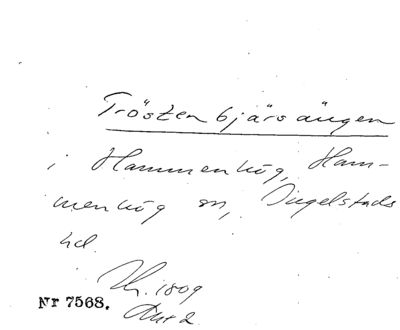 Tröstenbjärsängen
i Hammenhög, Ham-
menhög sn, Ingelstads
hd.
Lh. 1809
Akt 2
Nr 7568.